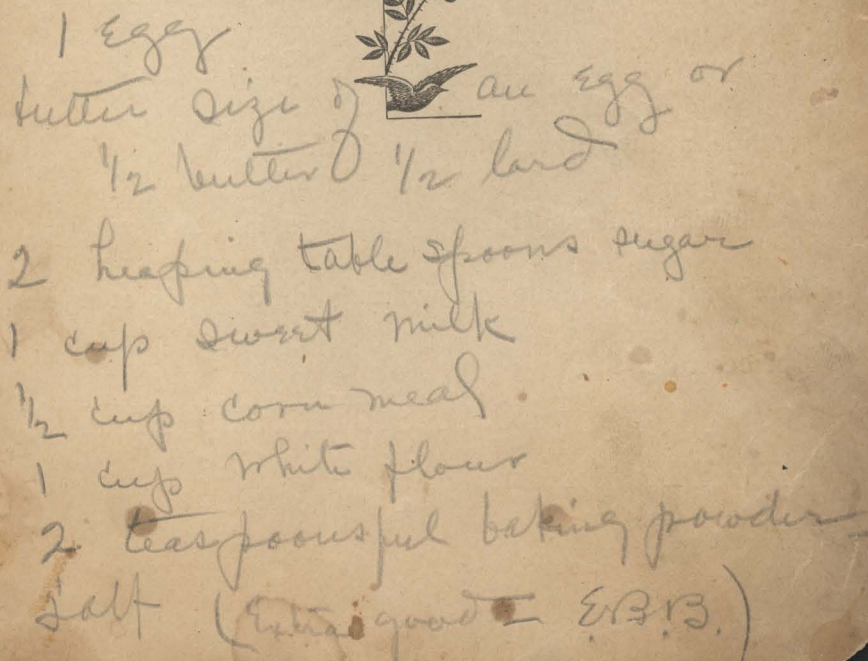 1 Egg
butter size of an egg or
1/2 butter 1/2 lard
2 heaping table spoons sugar
1 cup sweet milk
1/2 cup corn meal
1 cup white flour
2 teaspoonsful baking powder
Salt (Extra good - E.B.B.)